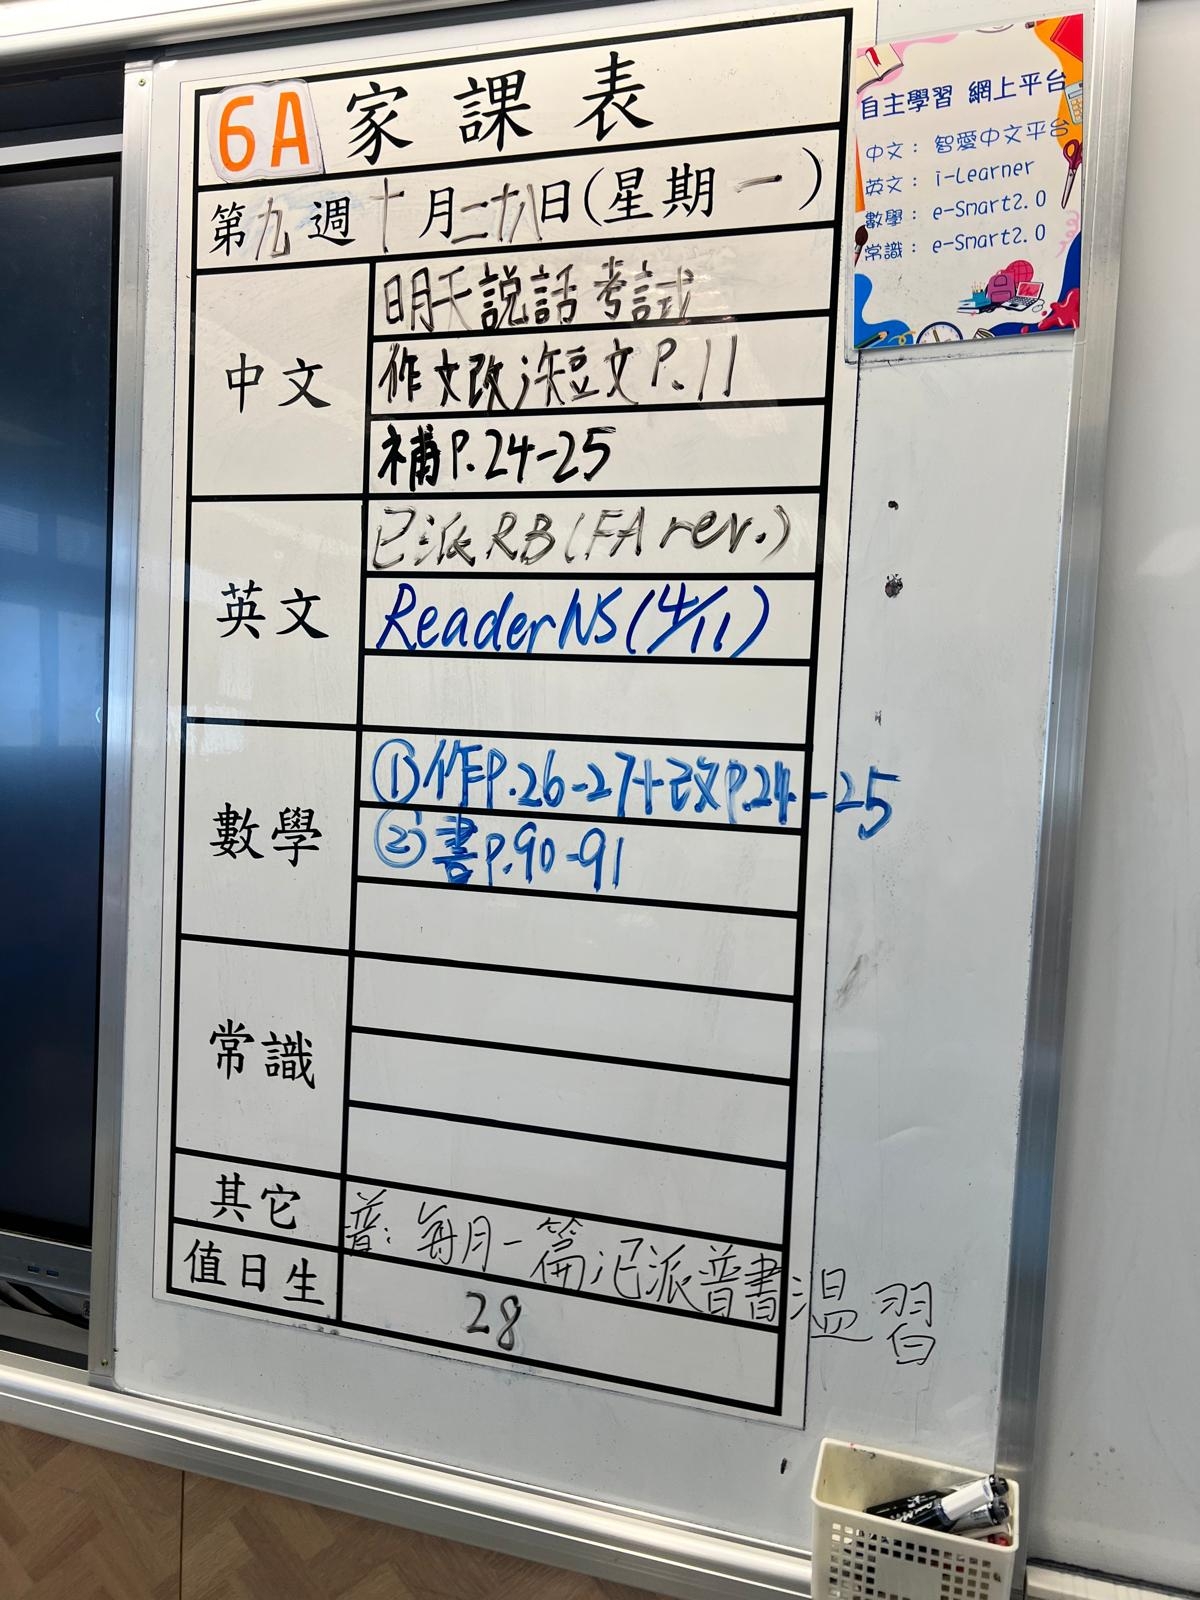 6A 家課表
第九週十月二十八日(星期一)
中文
明天説話考試
作文改決短文P.11
補P.24-25
英文
已派RB(FA rev.)
Reader NS(4/11)
數學
①作P.26-27+改P.24-25
②書P.90-91
常識
其它
普：每月一篇 已派普書 溫習
值日生
28
自主學習 網上平台
中文：智愛中文平台
英文：i-Learner
數學：e-Smart2.0
常識：e-Smart2.0